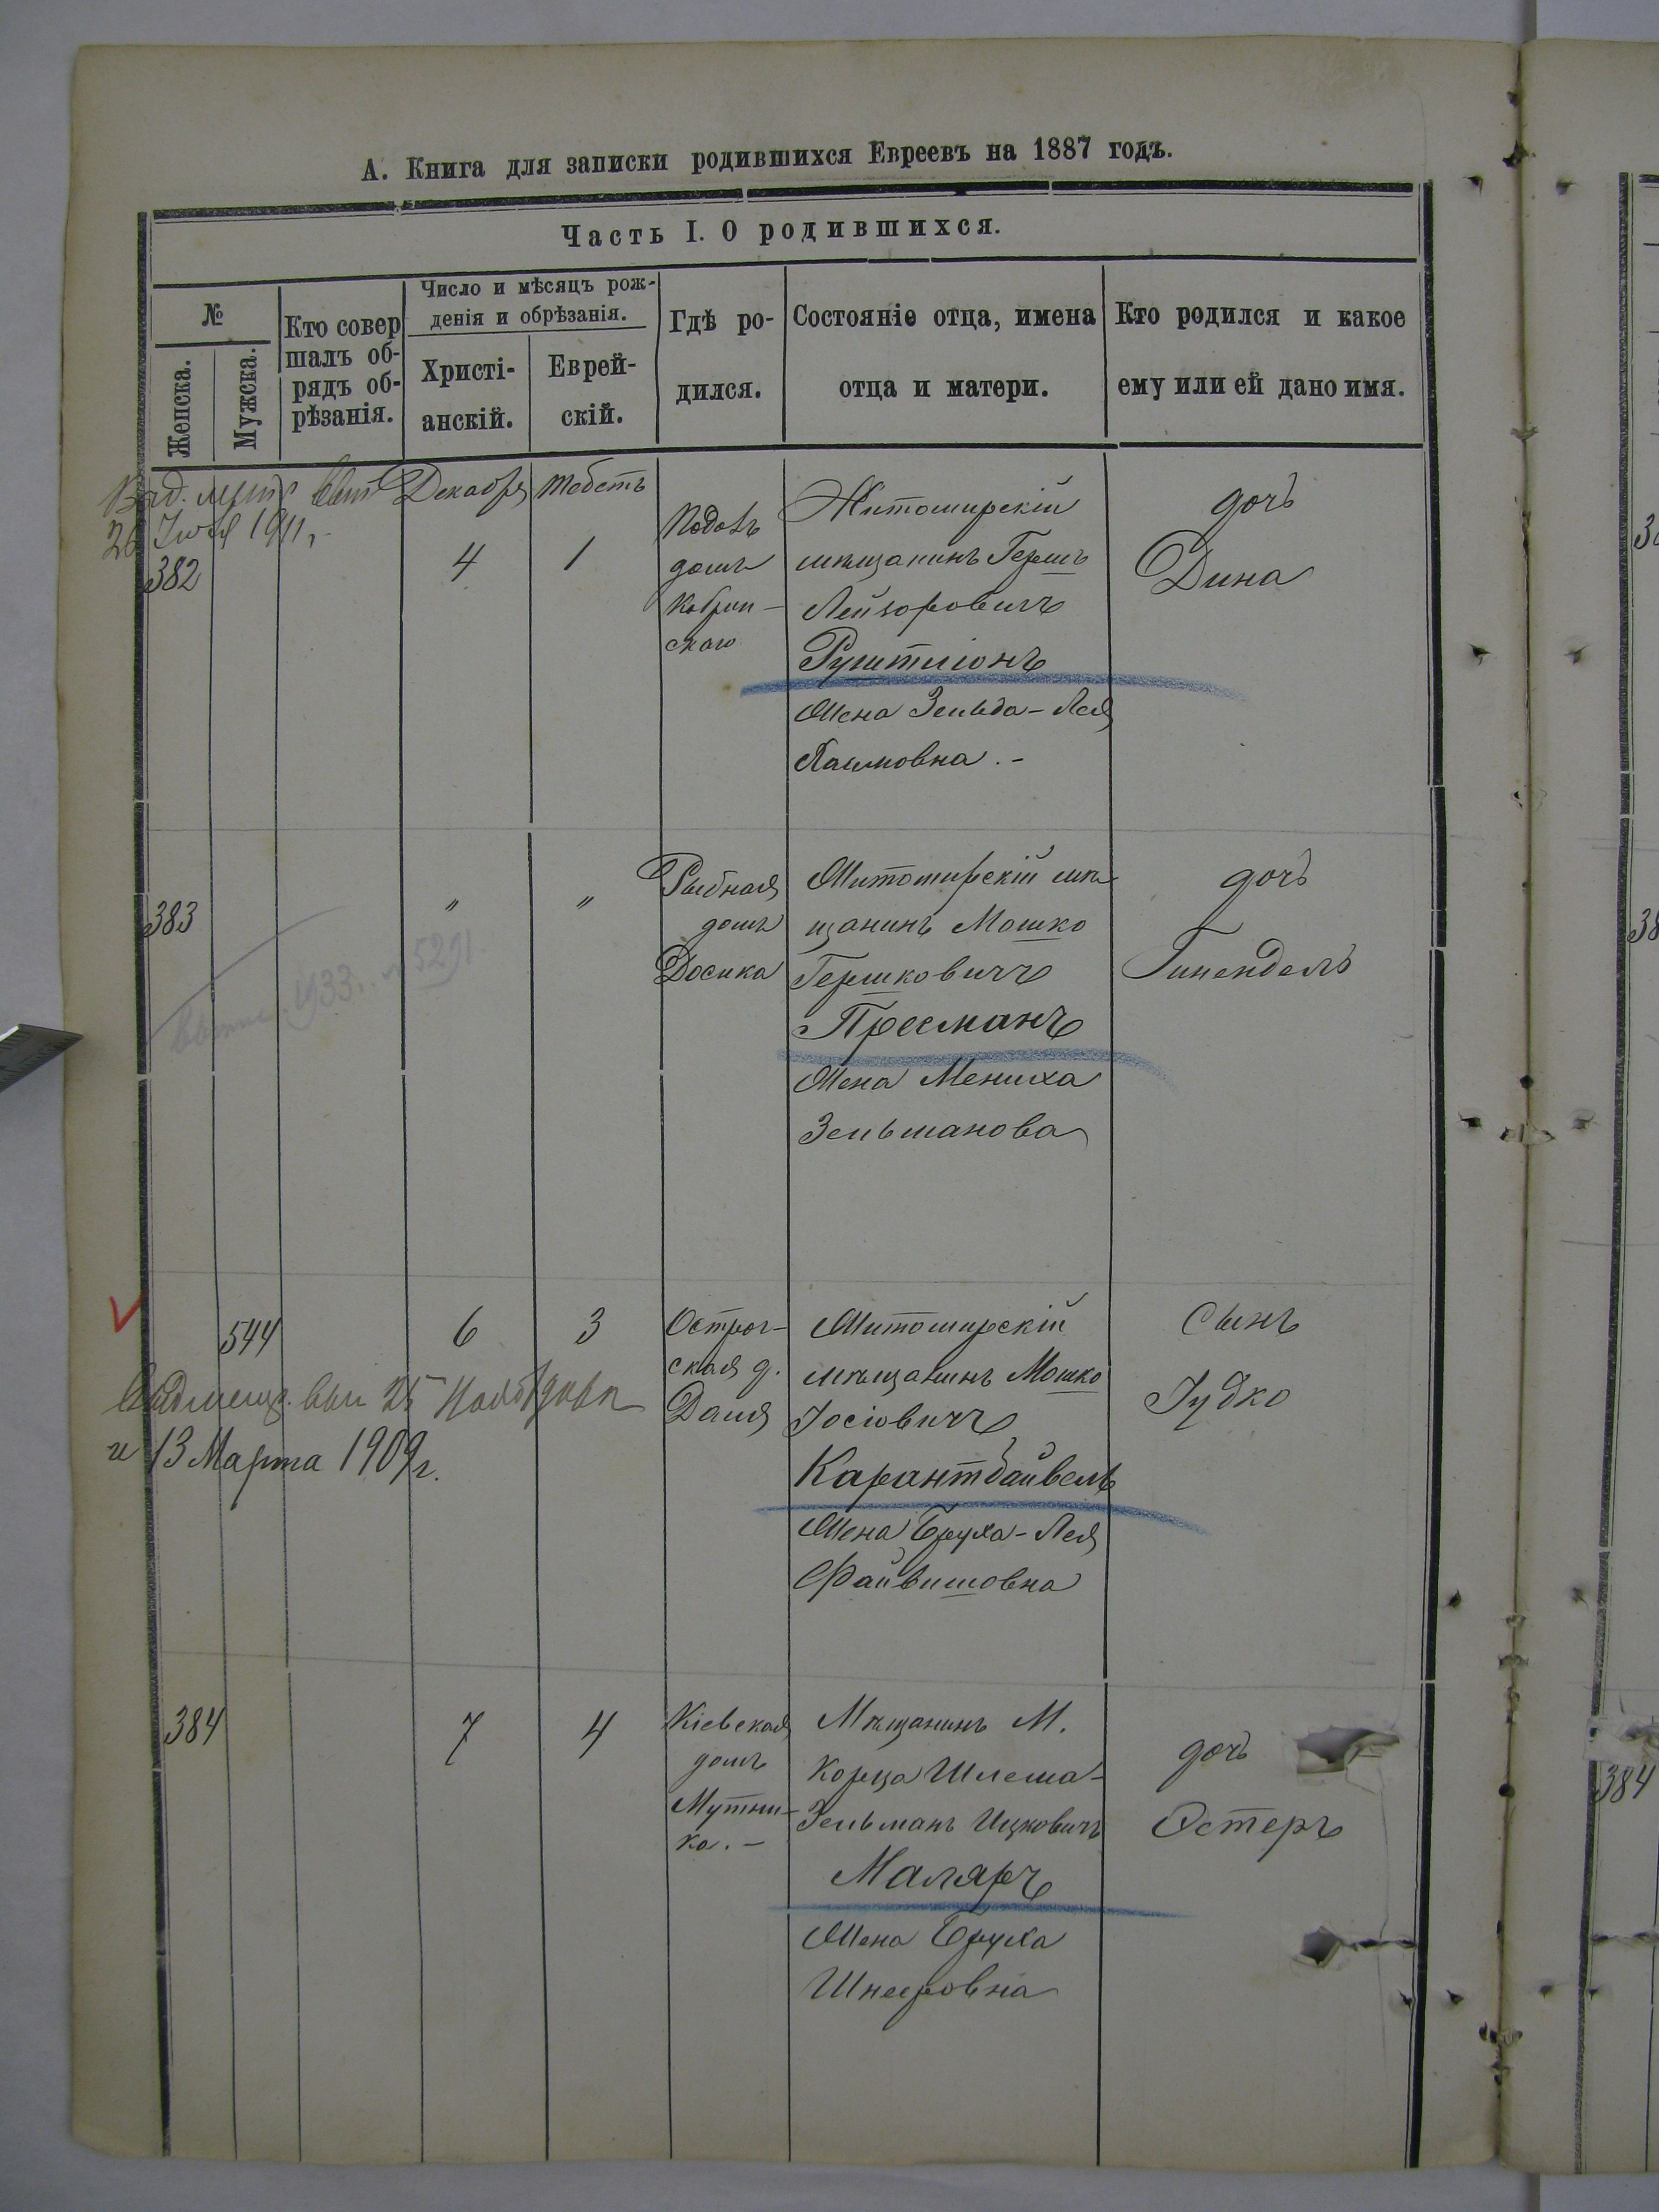 А. Книга для записки родившихся Евреевъ на 1887 годъ.
Часть I. О родившихся.
№
Женска.
Мужска.
Кто совер
шалъ об-
рядъ об-
рѣзанія.
Число и мѣсяцъ рож-
денія и обрѣзанія.
Христі-
анскій.
Еврей-
скій.
Гдѣ ро-
дился.
Состояніе отца, имена
отца и матери.
Кто родился и какое
ему или ей дано имя.
26 1911 г.
382
Декабря
4
Тебетъ
1
домъ
Кобрин-
скаго
Житомирскій
мѣщанинъ Гершъ
Лейзоровичъ
Жена Зельда-Лея
дочь
Дина
383
"
"
Рыбная
домъ
Досика
Житомирскій мѣ
щанинъ Мошко
Гершковичъ
Пресманъ
Жена Мениха
Зельманова
дочь
Гинендель
1933 5291
544
6
3
Острог-
ская д.
Житомирскій
мѣщанинъ Мошко
Іосіовичъ
Карантбайвель
Жена Бруха-Лея
Файвишовна
Сынъ
Іудко
25
и 13 Марта 1909 г.
384
7
4
Кіевская
домъ
Мутни-
ка.-
Мѣщанинъ М.
Корца Шлема-
Зельманъ Ицковичъ
Маляръ
Жена Бруха
Шнееровна
дочь
Эстеръ
384